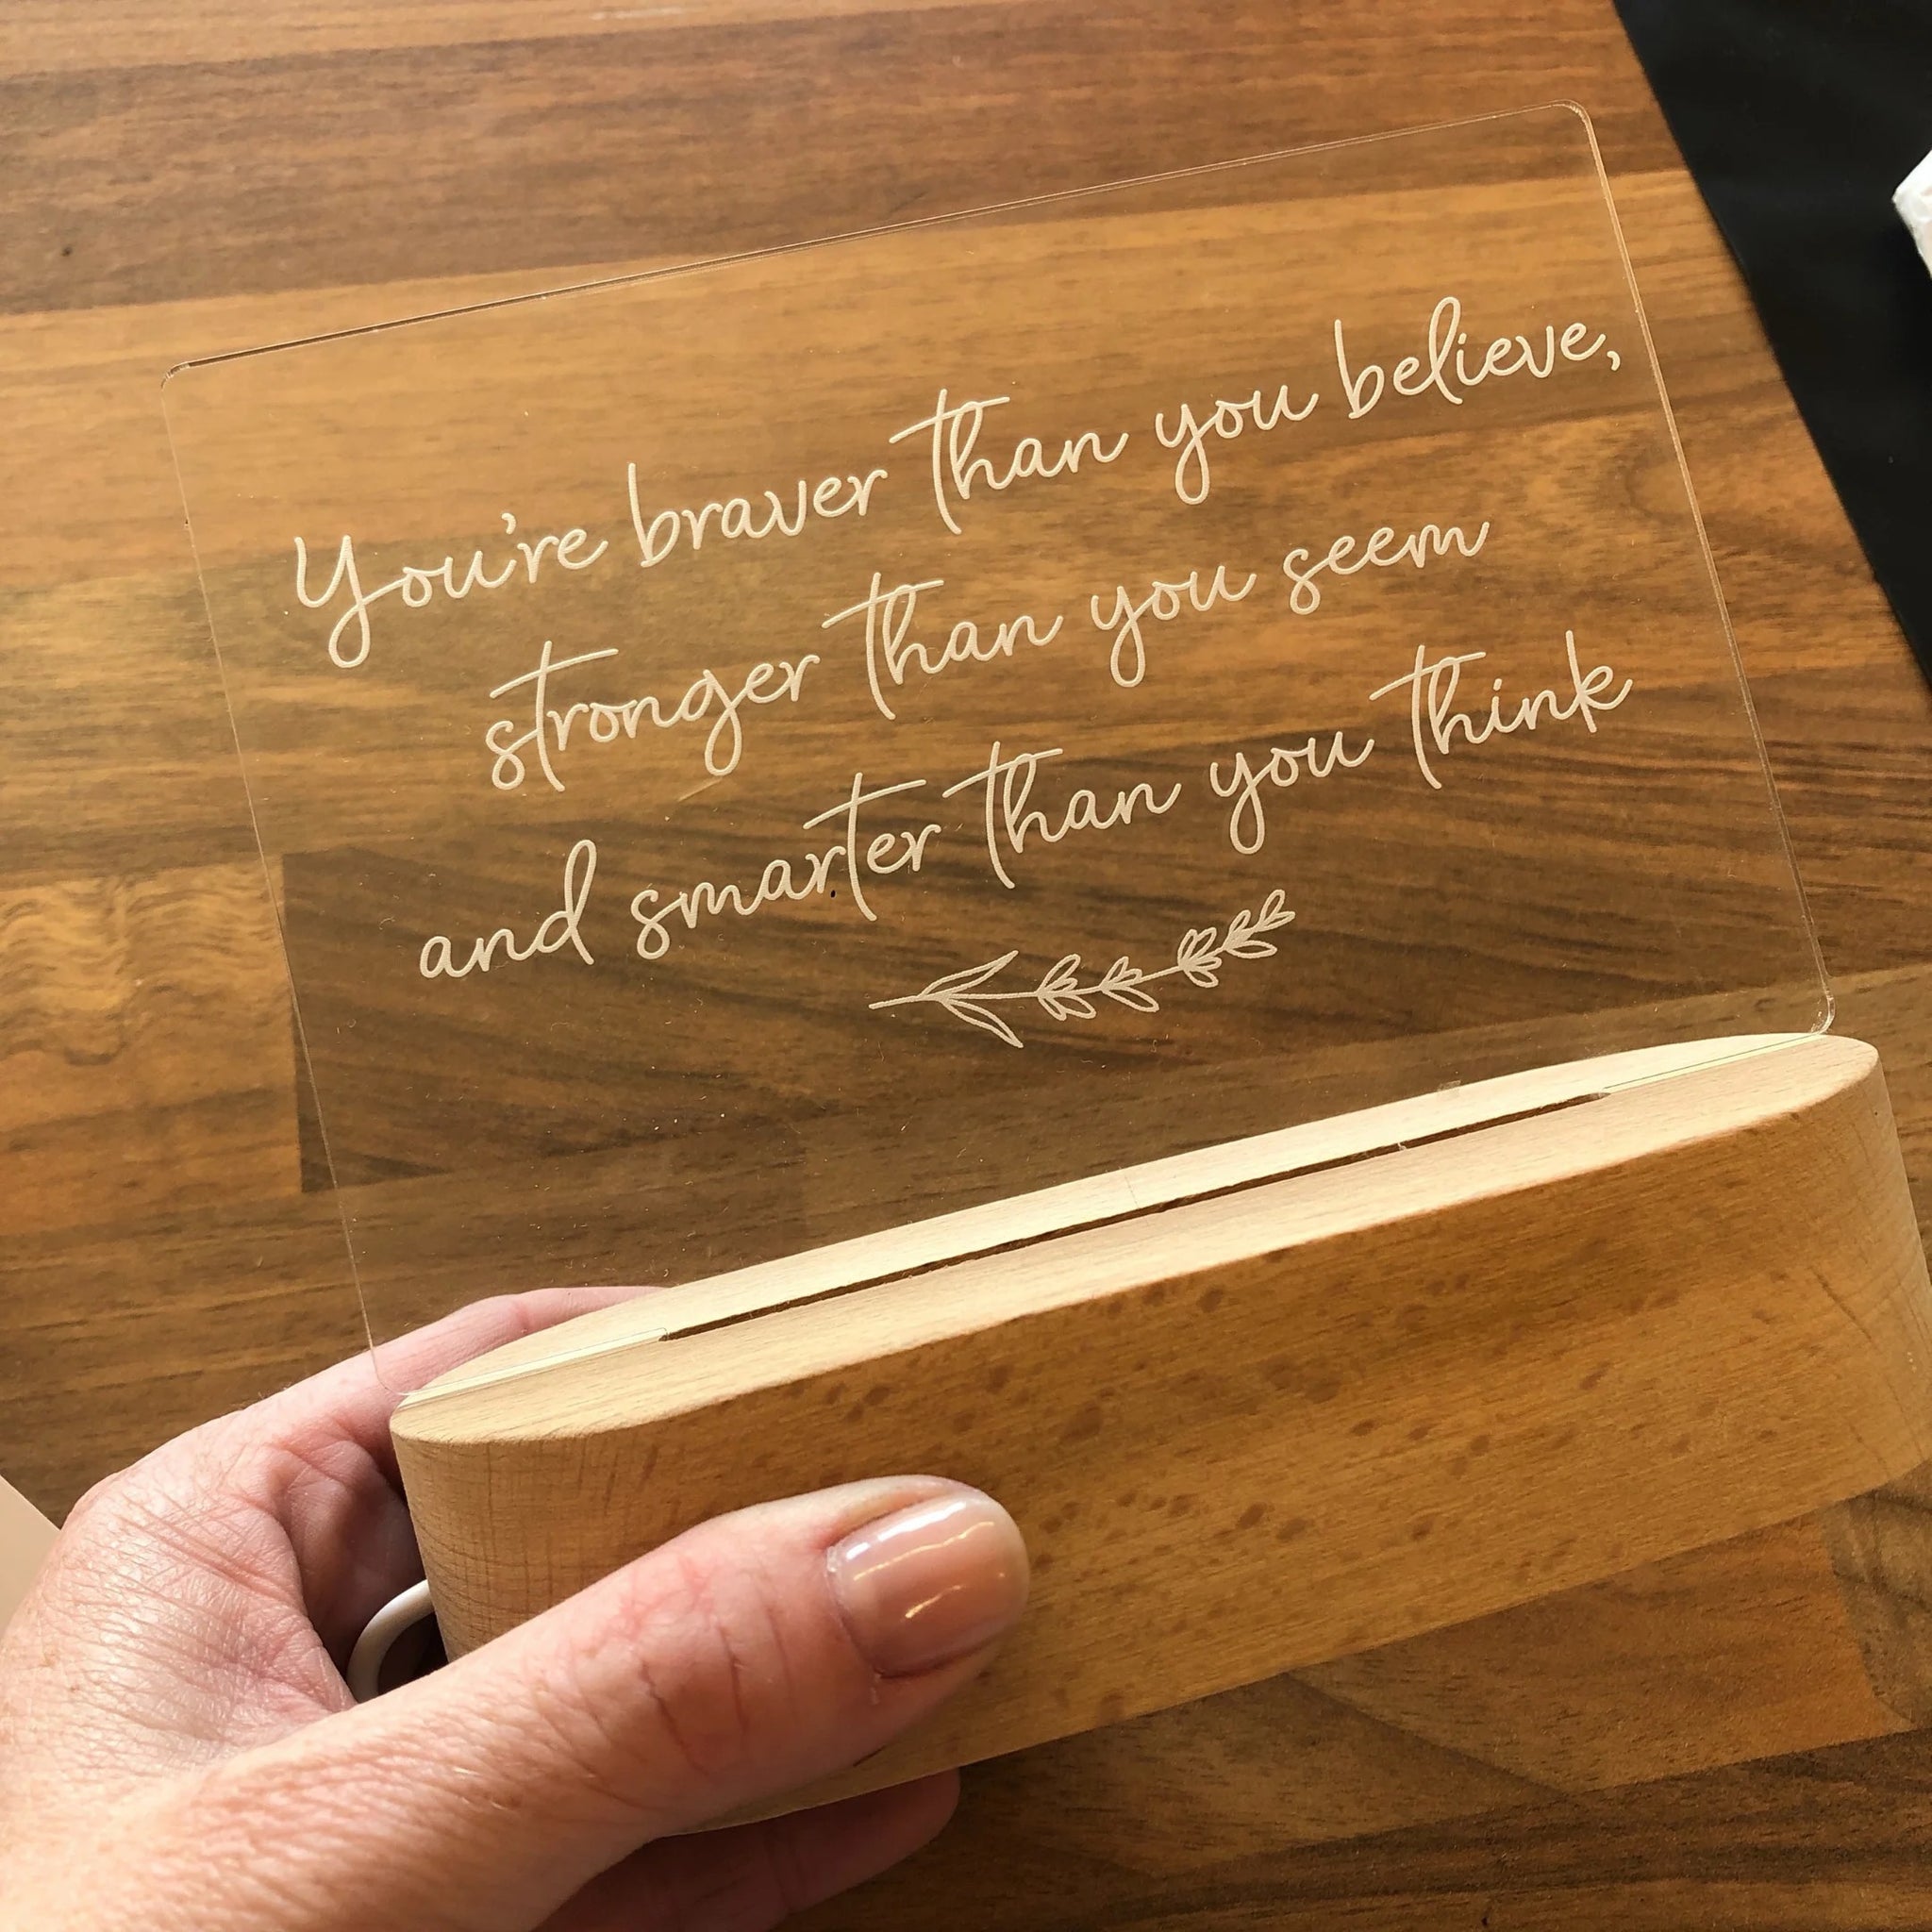 You're braver than you believe,
stronger than you seem
and smarter than you think